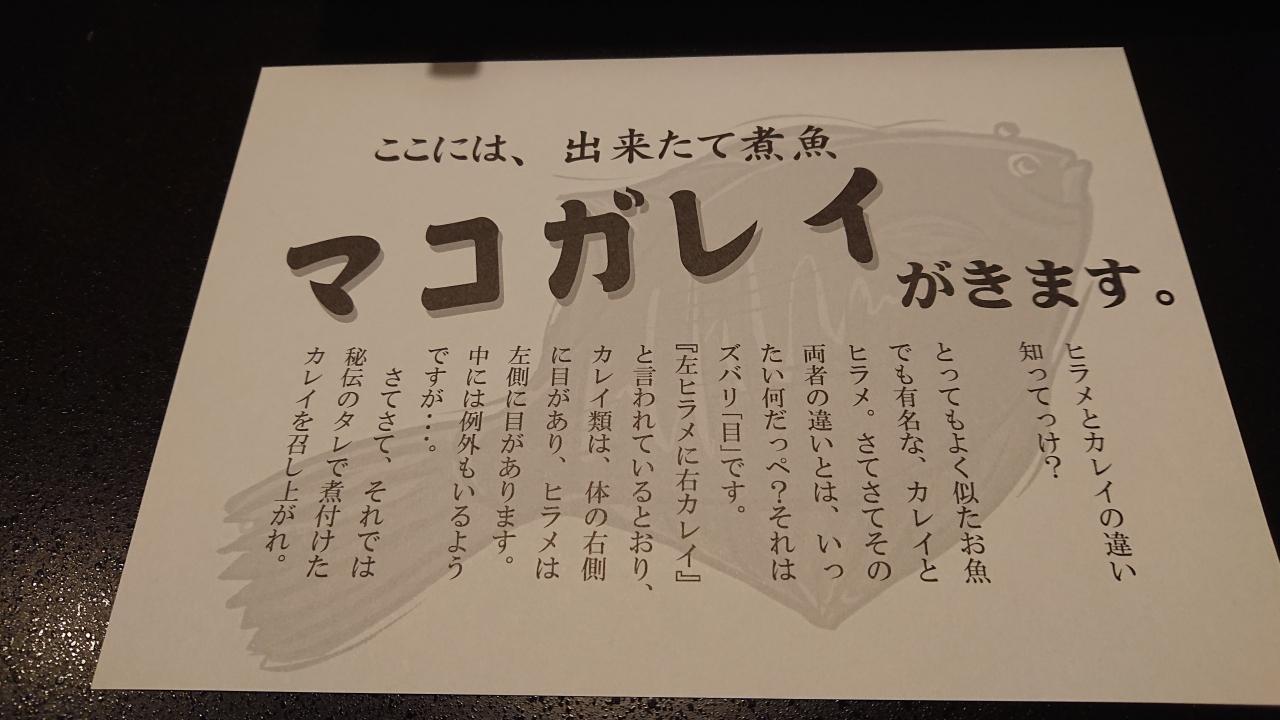 ここには、出来たて煮魚
マコガレイ
がきます。
ヒラメとカレイの違い
知ってっけ？
とってもよく似たお魚
でも有名な、カレイと
ヒラメ。さてさてその
両者の違いとは、いっ
たい何だっぺ？それは
ズバリ「目」です。
『左ヒラメに右カレイ』
と言われているとおり、
カレイ類は、体の右側
に目があり、ヒラメは
左側に目があります。
中には例外もいるよう
ですが・・・。
さてさて、それでは
秘伝のタレで煮付けた
カレイを召し上がれ。